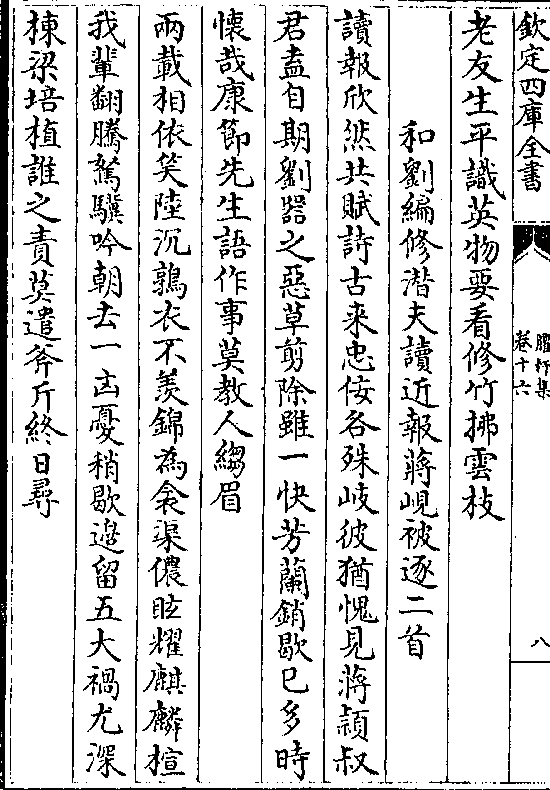 欽定四庫全書
臞軒集
卷十六
八
老友生平識英物要看修竹拂雲枝
和劉編修潛夫讀近報蔣峴被逐二首
讀報欣然共賦詩古来忠佞各殊岐彼猶愧見蔣頴叔
君盍自期劉器之惡草剪除雖一快芳蘭銷歇已多時
懷哉康節先生語作事莫教人縐眉
兩載相依笑陸沉鶉衣不羡錦為衾渠儂眩耀麒麟楦
我輩翻騰駑驥吟朝去一㓙憂稍歇邉留五大禍尤深
棟梁培植誰之責莫遣斧斤終日尋